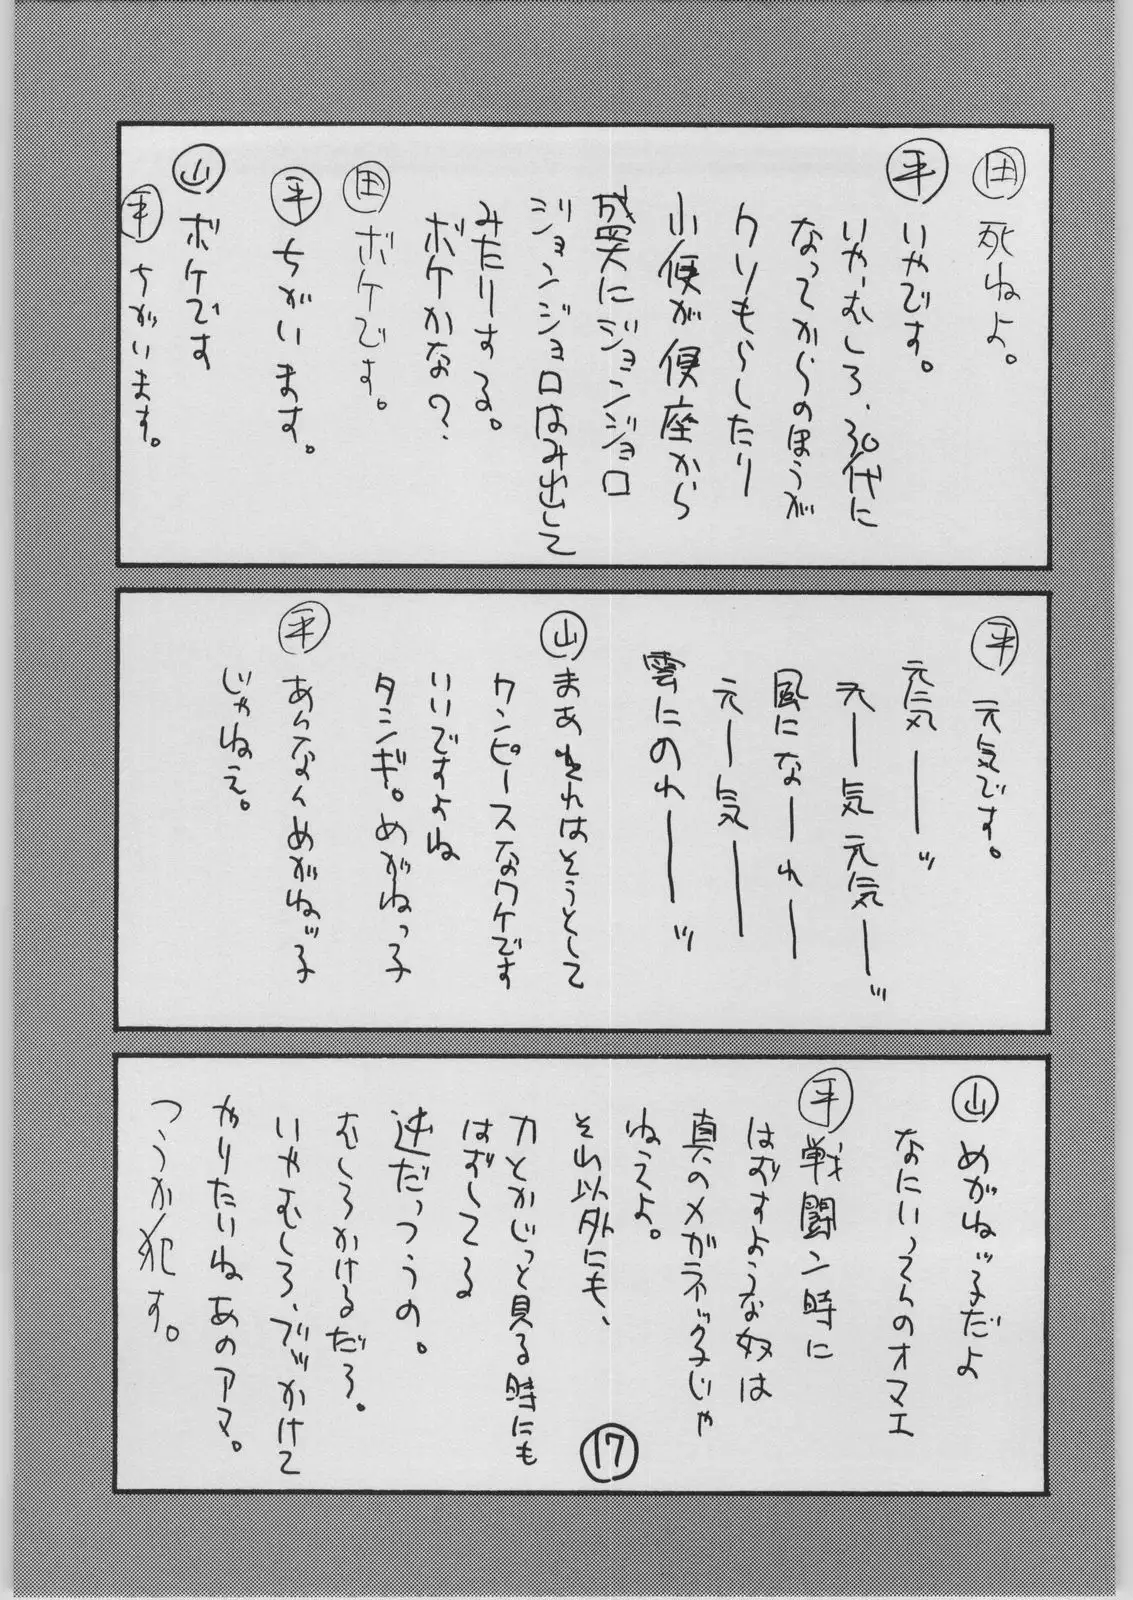 田 死ねよ。
平 いやです。
いやむしろ、30代に
なってからのほうが
クソもらしたり
小便が便座から
盛大にジョンジョロ
ジョンジョロはみ出して
みたりする。
ボケかな？
田 ボケです。
平 ちがいます。
山 ボケです
平 ちがいます。
平 元気です。
元気ーーッ
元ー気元気ーッ
風になーれー
元ー気ーー
雲にのれーーッ
山 まあそれはそうとして
ワンピースなワケです
いいですよね
タシギ。めがねっ子
平 あんなんめがねッ子
じゃねえ。
山 めがねッ子だよ
なにいってんのオマエ
平 戦闘ン時に
はずすような奴は
真のメガネッ子じゃ
ねえよ。
それ以外にも、
刀とかじっと見る時にも
はずしてる
逆だっつうの。
むしろかけるだろ。
いやむしろ、ブッかけて
やりたいねあのアマ。
つうか犯す。
17